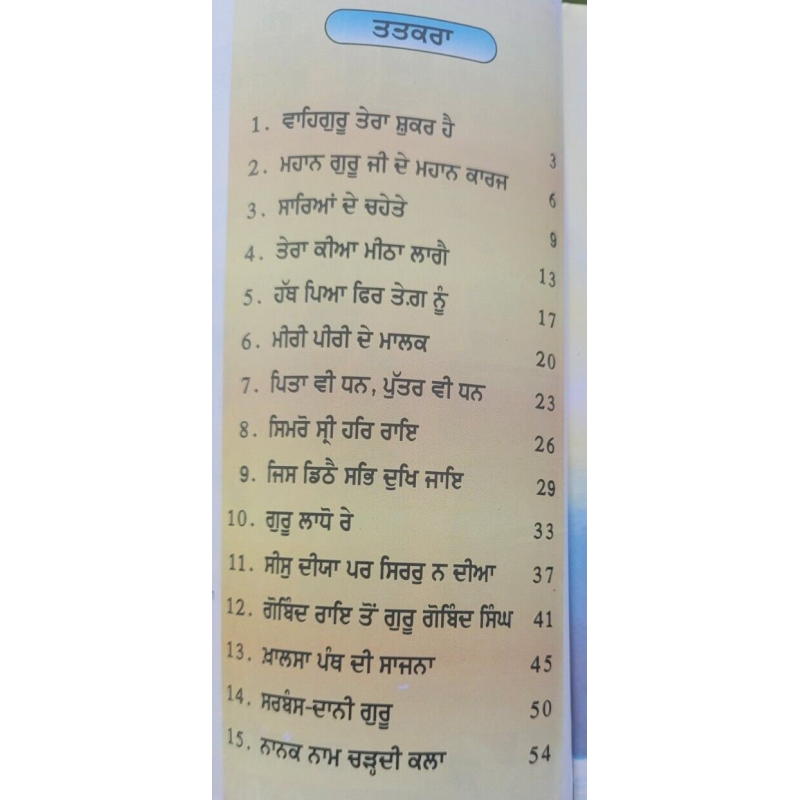 ਤਤਕਰਾ
1. ਵਾਹਿਗੁਰੂ ਤੇਰਾ ਸ਼ੁਕਰ ਹੈ 3
2. ਮਹਾਨ ਗੁਰੂ ਜੀ ਦੇ ਮਹਾਨ ਕਾਰਜ 6
3. ਸਾਰਿਆਂ ਦੇ ਚਹੇਤੇ 9
4. ਤੇਰਾ ਕੀਆ ਮੀਠਾ ਲਾਗੈ 13
5. ਹੱਥ ਪਿਆ ਫਿਰ ਤੇਗ਼ ਨੂੰ 17
6. ਮੀਰੀ ਪੀਰੀ ਦੇ ਮਾਲਕ 20
7. ਪਿਤਾ ਵੀ ਧਨ, ਪੁੱਤਰ ਵੀ ਧਨ 23
8. ਸਿਮਰੋ ਸ੍ਰੀ ਹਰਿ ਰਾਇ 26
9. ਜਿਸ ਡਿਠੈ ਸਭਿ ਦੁਖਿ ਜਾਇ 29
10. ਗੁਰੂ ਲਾਧੋ ਰੇ 33
11. ਸੀਸੁ ਦੀਯਾ ਪਰ ਸਿਰਰੁ ਨ ਦੀਆ 37
12. ਗੋਬਿੰਦ ਰਾਇ ਤੋਂ ਗੁਰੂ ਗੋਬਿੰਦ ਸਿੰਘ 41
13. ਖ਼ਾਲਸਾ ਪੰਥ ਦੀ ਸਾਜਨਾ 45
14. ਸਰਬੰਸ-ਦਾਨੀ ਗੁਰੂ 50
15. ਨਾਨਕ ਨਾਮ ਚੜ੍ਹਦੀ ਕਲਾ 54